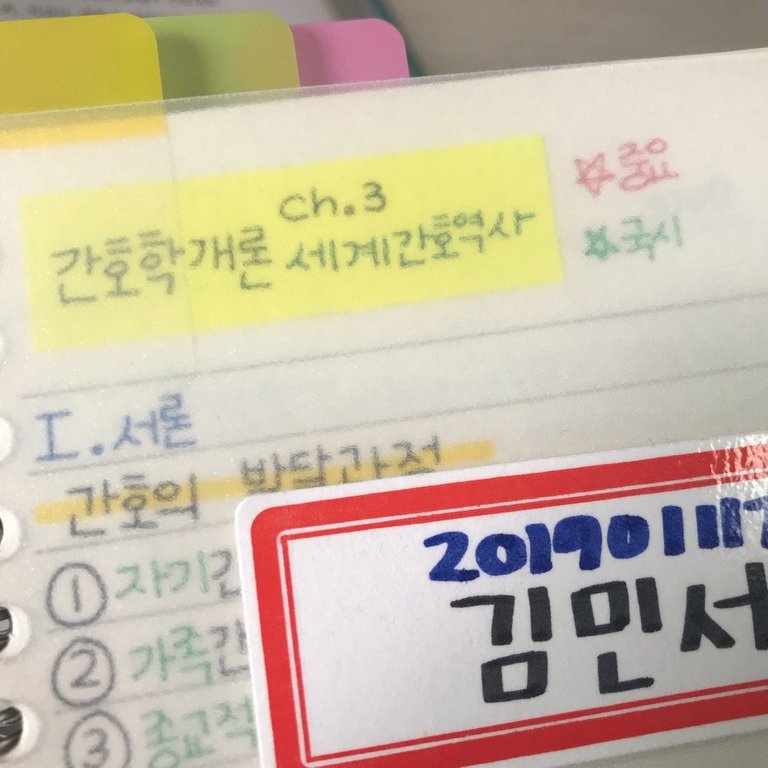 Ch.3
간호학개론 세계간호역사
☆중요
☆국시
I. 서론
간호의 발달과정
① 자기간
② 가족간
③ 종교적
김민서